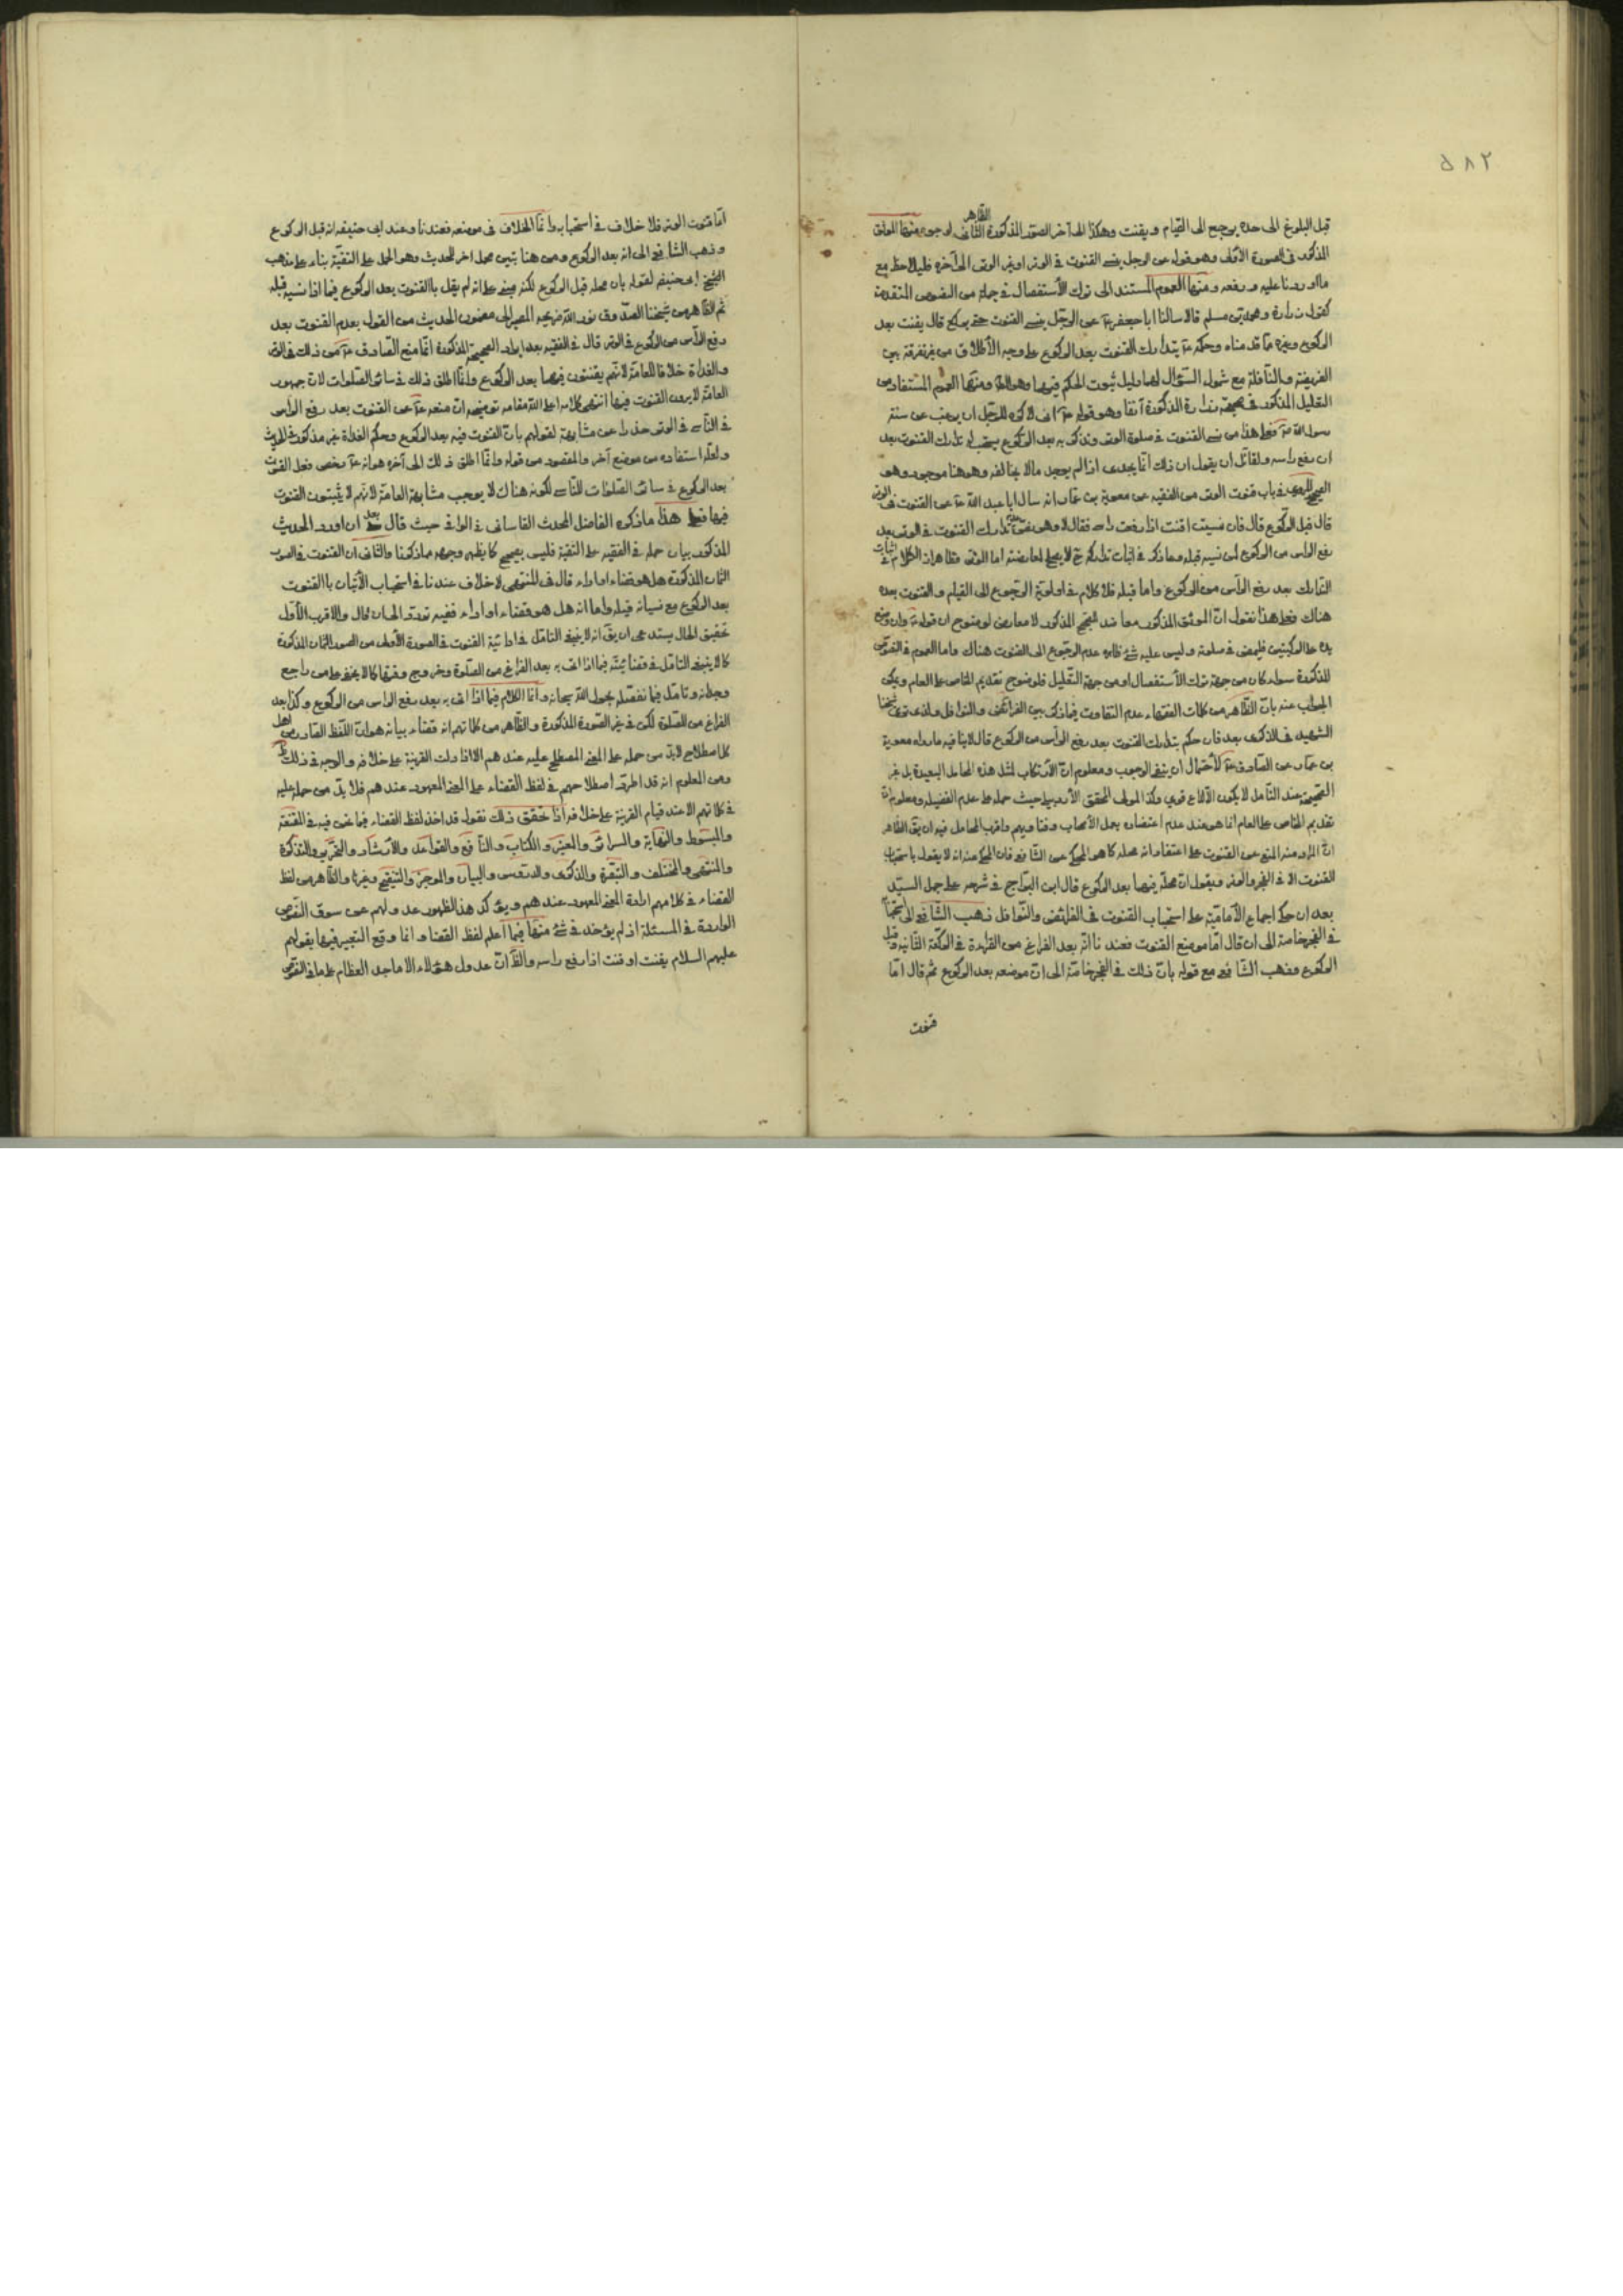 ٥٨٢
قبل البلوغ الى حده يرجع الى القيام ويقنت وهكذا الى آخر الصور المذكورة الثانى لوجوه منها
الظاهر
المذكور فى الصورة الأولى وهو قوله عن الرجل ينسى القنوت فى الوتر او غير الوتر الى آخره فليلاحظ مع
ما اوردنا عليه ودفعه ومنها العموم المستند الى ترك الأستفصال فى جملة من النصوص المتقدمة
كقول زرارة ومحمد بن مسلم قالا سالنا ابا جعفر ع عن الرجل ينسى القنوت حتى يركع قال يقنت بعد
الركوع وغيره مما قدمناه وحكمه ع بتدارك القنوت بعد الركوع على وجه الأطلاق من غير تفرقة بين
الفريضة والنافلة مع شمول السؤال لهما دليل ثبوت الحكم فيهما وهو ومنها العموم المستفاد من
التعليل المذكور فى صحيحة زرارة المذكورة آنفا وهو قوله ع انى لاكره للرجل ان يرغب عن سنة
رسول الله ص فعلى هذا من نسى القنوت فى صلوة الوتر وتذكر به بعد الركوع يستحب له تدارك القنوت بعد
ان رفع راسه ولقائل ان يقول ان ذلك انما يجدى اذا لم يوجد ما لا يخالفه وهو هنا موجود وهو
الصحيح المروى فى باب قنوت الوتر من الفقيه عن معوية بن عمار انه سال ابا عبد الله ع عن القنوت فى الوتر
قال قبل الركوع قال فان نسيت اقنت اذا رفعت راسى فقال لا وهو تدارك القنوت فى الوتر بعد
رفع الراس من الركوع لمن نسيه قبله وما ذكر فى اثبات تداركه ح لا يصلح لمعارضته اما الوتر فظاهر اذ الكلام فى اثبات
التدارك بعد رفع الرأس من الركوع واما قبله فلا كلام فى اولوية الرجوع الى القيام والقنوت بعده
هناك فعلى هذا نقول ان الموثق المذكور معاضد للصحيح المذكور لا معارض لوضوح ان قوله ع وان وضع
يده على الركبتين فليمض فى صلوته وليس عليه شئ ظاهره عدم الرجوع الى القنوت هناك واما العموم فى النصوص
المذكورة سواء كان من جهة ترك الأستفصال او من جهة التعليل فلوضوح تقديم الخاص على العام ويمكن
الجواب عنه بان الظاهر من كلمات الفقهاء عدم التفاوت فيما ذكر بين الفرائض والنوافل ولذا ترى شيخنا
الشهيد فى الذكرى بعد ان حكم بتدارك القنوت بعد رفع الرأس من الركوع قال لا ينافيه ما رواه معوية
بن عمار عن الصادق ع لأحتمال ان ينفى الوجوب ومعلوم ان الأرتكاب لمثل هذه المحامل البعيدة بل غير
الصحيحة عند التأمل لا يكون الا لداع قوى وكذا المولى المحقق الأردبيلى حيث حمله على عدم الفضيلة ومعلوم ان
تقديم الخاص على العام انما هو عند عدم اعتضاده بعمل الأصحاب وفتاويهم واقرب المحامل فيه ان يق الظاهر
ان المراد منه المنع عن القنوت على اعتقاد انه محله كما هو المحكى عن الشافعى فان المحكى عنه انه لا يقول باستحباب
القنوت الا فى الفجر والوتر ويقول ان محله فيهما بعد الركوع قال ابن البراج فى شرحه على جمل السيد
بعد ان حكى اجماع الأمامية على استحباب القنوت فى الفرائض والنوافل ذهب الشافعى الى استحبابها
فى الفجر خاصة الى ان قال اما موضع القنوت فعندنا انه بعد الفراغ من القراءة فى الركعة الثانية وقبل
الركوع ومذهب الشافعى مع قوله بان ذلك فى الفجر خاصة الى ان موضعه بعد الركوع ثم قال اما
قنوت
اما قنوت الوتر فلا خلاف فى استحبابه وانما الخلاف فى موضعه فعندنا وعند ابى حنيفة انه قبل الركوع
وذهب الشافعى الى انه بعد الركوع ومن هنا تبين محمل اخر للحديث وهو الحمل على التقية بناء على مذهب
الشيخ ابى حنيفة لقوله بان محله قبل الركوع لكنه مبنى على انه لم يقل بالقنوت بعد الركوع فيما اذا نسيه قبله
ثم الظاهر من شيخنا الصدوق نور الله ضريحه المصير الى مضمون الحديث من القول بعدم القنوت بعد
رفع الرأس من الركوع فى الوتر قال فى الفقيه بعد ايراد الصحيحة المذكورة انما منع الصادق ع من ذلك فى الوتر
والغداة خلافا للعامة لانهم يقنتون فيهما بعد الركوع وانما اطلق ذلك فى سائر الصلوات لان جمهور
العامة لا يرون القنوت فيها انتهى كلامه اعلى الله مقامه توضيحه ان منعه ع عن القنوت بعد رفع الراس
فى الناسى فى الوتر حذرا عن مشابهة لقولهم بان القنوت فيه بعد الركوع وحكم الغداة غير مذكور فى الحديث
ولعله استفاده من موضع آخر والمقصود من قوله وانما اطلق ذلك الى آخره هو انه ع رخص فعل القنوت
بعد الركوع فى سائر الصلوات للناسى لكونه هناك لا يوجب مشابهة العامة لانهم لا يثبتون القنوت
فيها فعلى هذا ما ذكره الفاضل المحدث القاسانى فى الوافى حيث قال بعد ان اورد الحديث
المذكور بيان حمله فى الفقيه على التقية فليس بصحيح كما يظهر وجهه مما ذكرنا والثانى ان القنوت فى الصور
الثمان المذكورة هل هو قضاء او اداء قال فى المنتهى لا خلاف عندنا فى استحباب الأتيان بالقنوت
بعد الركوع مع نسيانه قبله واما انه هل هو قضاء او اداء ففيه تردد الى ان قال والاقرب الأول
تحقيق الحال يستدعى ان يق انه لا ينبغى التامل فى ادائية القنوت فى الصورة الأولى من الصور الثمان المذكورة
كما لا ينبغى التامل فى قضائيته فيما اذا اتى به بعد الفراغ من الصلوة وخروج وقتها كما لا يخفى على من راجع
وجدانه وتامل فيما نفصله بحول الله سبحانه وانما الكلام فيما اذا اتى به بعد رفع الراس من الركوع وكذا بعد
الفراغ من الصلوة لكن فى غير الصورة المذكورة والظاهر من كلماتهم انه قضاء بيانه هو ان اللفظ الصادر من اهل
كل اصطلاح لابد من حمله على المعنى المصطلح عليه عندهم الا اذا دلت القرينة على خلافه والوجه فى ذلك ظ
ومن المعلوم انه قد اطرد اصطلاحهم فى لفظ القضاء على المعنى المعهود عندهم فلا بد من حمله عليه
فى كلماتهم الا عند قيام القرينة على خلافه اذا تحقق ذلك نقول قد اخذ لفظ القضاء فيما نحن فيه فى المقنعة
والمبسوط والنهاية والسرائر والمعتبر والكتاب والنافع والقواعد والأرشاد والتحرير والتذكرة
والمنتهى والمختلف والتبصرة والذكرى والدروس والبيان والموجز والتنقيح وغيرها والظاهر من لفظ
القضاء فى كلامهم ارادة المعنى المعهود عندهم ويؤكد هذا الظهور عدولهم عن سوق النصوص
الواردة فى المسئلة اذ لم يوجد فى شئ منها فيما اعلم لفظ القضاء وانما وقع التعبير فيها بقولهم
عليهم السلام يقنت او قنت اذا رفع راسه والظ ان عدول هؤلاء الاماجد العظام عما فى النصوص